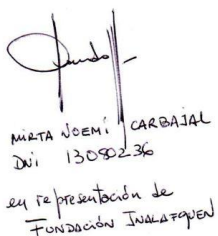 MIRTA NOEMÍ CARBAJAL
DNi 13090236
en representación de
FUNDACIÓN INALAFQUEN